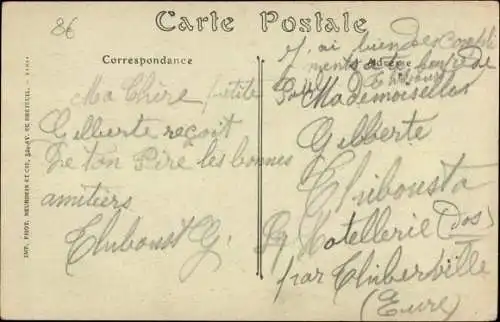 86
Carte Postale
Correspondance
Adresse
Ma Chère petite
Gilberte reçoit
De ton Père les bonnes
amitiers
Thiboust G.
J'ai bien des compli
Mademoiselle
Gilberte
Thiboust
La Hotellerie
par Thiberville
(Eure)
IMP. PHOT. NEURDEIN ET CIE, 52, AV. DE BRETEUIL. - PARIS